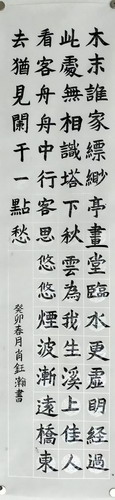 木末誰家縹緲亭畫堂臨水更虛明經過
此處無相識塔下秋雲為我生溪上佳人
看客舟舟中行客思悠悠煙波漸遠橋東
去猶見闌干一點愁
癸卯春月肖鈺瀚書